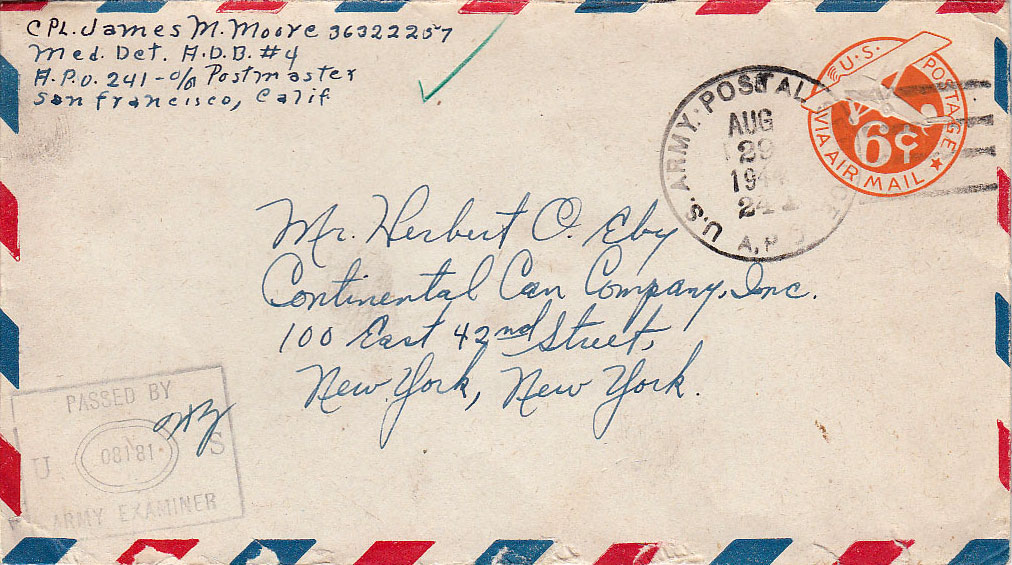 CPL. James M. Moore 36322257
Med. Det. A.D.B. #4
A.P.O. 241 - c/o Postmaster
San Francisco, Calif
U.S. ARMY. POSTAL
A.P.
AUG
29
24
U.S. POSTAGE
6¢
VIA AIR MAIL
Mr. Herbert O. Eby
Continental Can Company, Inc.
100 East 42nd Street,
New York, New York.
PASSED BY
U 08181 S
ARMY EXAMINER